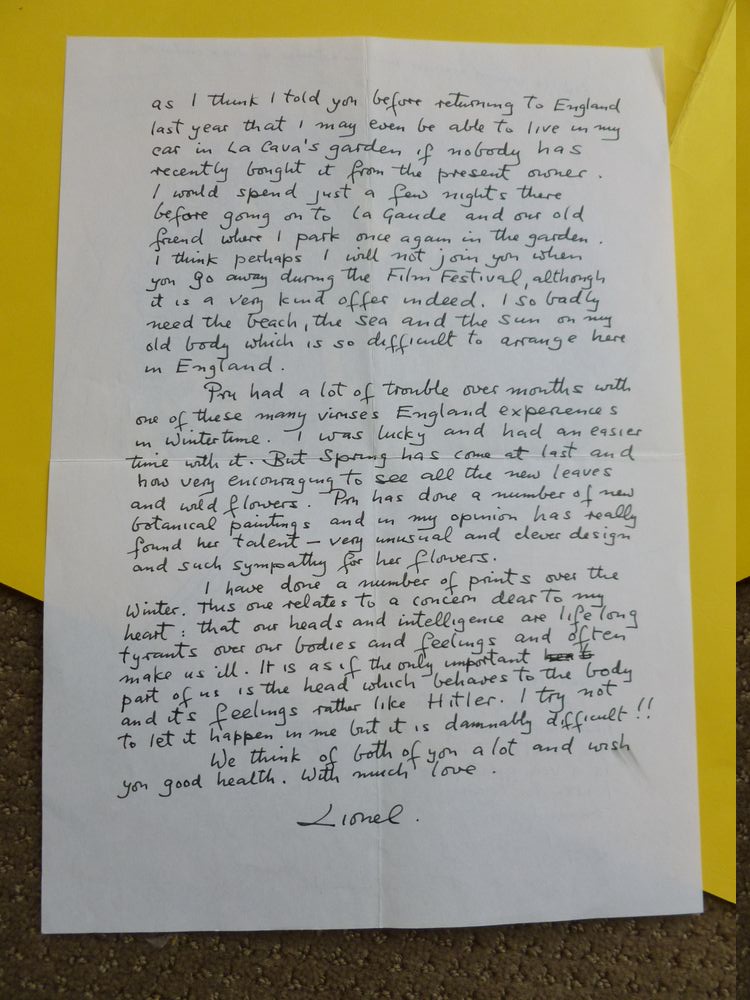 as I think I told you before returning to England
last year that I may even be able to live in my
car in La Cava's garden if nobody has
recently bought it from the present owner.
I would spend just a few nights there
before going on to La Gaude and our old
friend where I park once again in the garden.
I think perhaps I will not join you when
you go away during the Film Festival, although
it is a very kind offer indeed. I so badly
need the beach, the sea and the sun on my
old body which is so difficult to arrange here
in England.
Pru had a lot of trouble over months with
one of these many viruses England experiences
in Wintertime. I was lucky and had an easier
time with it. But Spring has come at last and
how very encouraging to see all the new leaves
and wild flowers. Pru has done a number of new
botanical paintings and in my opinion has really
found her talent – very unusual and clever design
and such sympathy for her flowers.
I have done a number of prints over the
Winter. This one relates to a concern dear to my
heart: that our heads and intelligence are life long
tyrants over our bodies and feelings and often
make us ill. It is as if the only important
part of us is the head which behaves to the body
and it's feelings rather like Hitler. I try not
to let it happen in me but it is damnably difficult!!
We think of both of you a lot and wish
you good health. With much love.
Lionel.